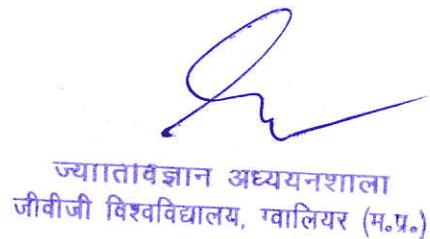 ज्याातिविज्ञान अध्ययनशाला
जीवीजी विश्वविद्यालय, ग्वालियर (म.प्र.)